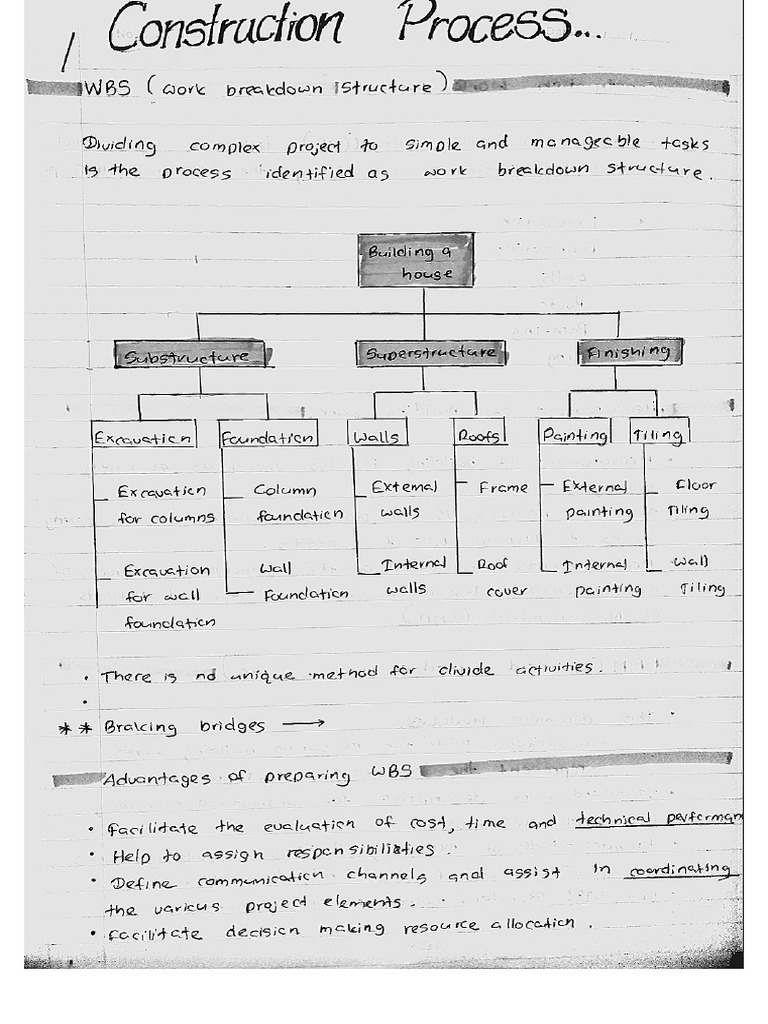 Construction Process...
WBS (Work breakdown structure)
Dividing complex project to simple and manageable tasks
is the process identified as work breakdown structure.
Building a
house
Substructure Superstructure Finishing
Excavation Foundation Walls Roofs Painting Tiling
Excavation
for columns
Excavation
for wall
foundation
Column
foundation
Wall
Foundation
External
walls
Internal
walls
Frame
Roof
cover
External
painting
Internal
painting
Floor
Tiling
Wall
Tiling
• There is no unique method for divide activities.
•
** Braking bridges →
Advantages of preparing WBS
• Facilitate the evaluation of cost, time and technical performan
• Help to assign responsibilities.
• Define communication channels and assist in coordinating
the various project elements.
• Facilitate decision making resource allocation.